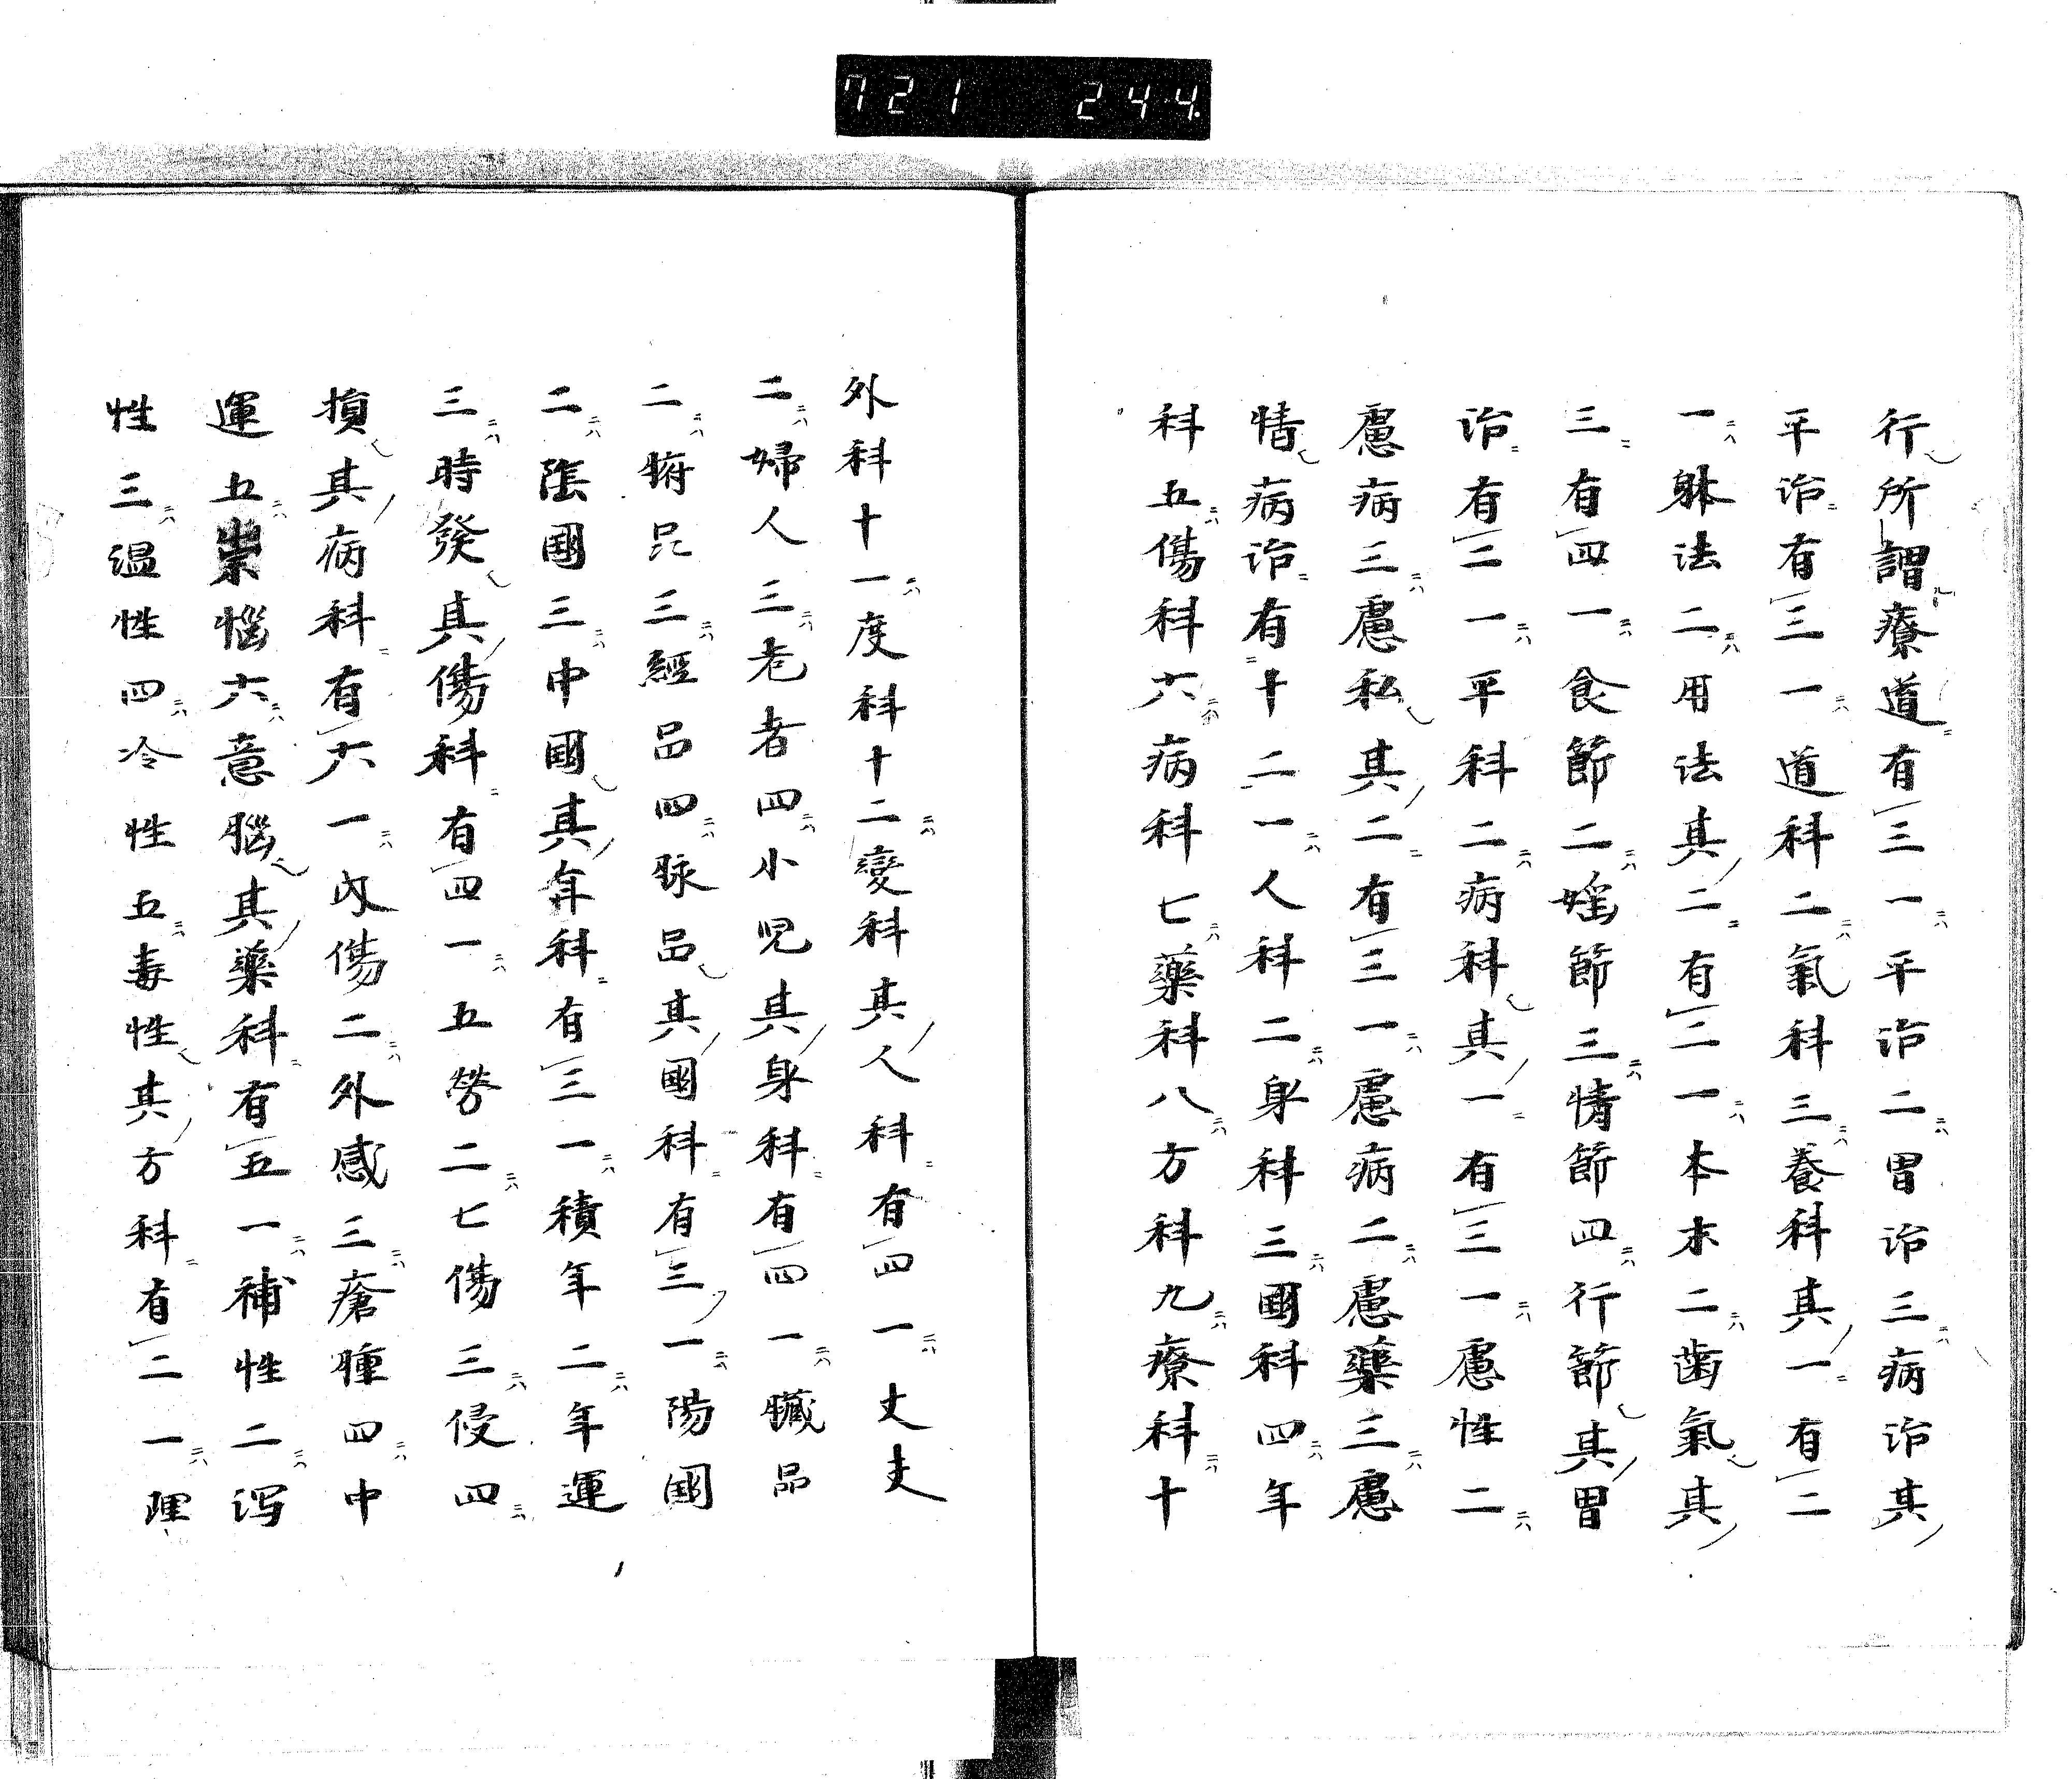 721 244.
行所謂療道有三一平治二胃治三病治其
平治有三一道科二氣科三養科其一有二
一躰法二用法其二有二一本末二歯氣其
三有四一食節二婬節三情節四行節其胃
治有二一平科二病科其一有三一慮性二
慮病三慮私其二有三一慮病二慮藥三慮
情病治有十二一人科二身科三國科四年
科五傷科六病科七藥科八方科九療科十
外科十一度科十二變科其人科有四一丈夫
二婦人三老者四小児其身科有四一臓品
二腑品三經品四脉品其國科有三一陽國
二陰國三中國其年科有三一積年二年運
三時發其傷科有四一五勞二七傷三侵四
損其病科有六一内傷二外感三瘡腫四中
運五祟惱六意腦其藥科有五一補性二泻
性三温性四冷性五毒性其方科有二一理